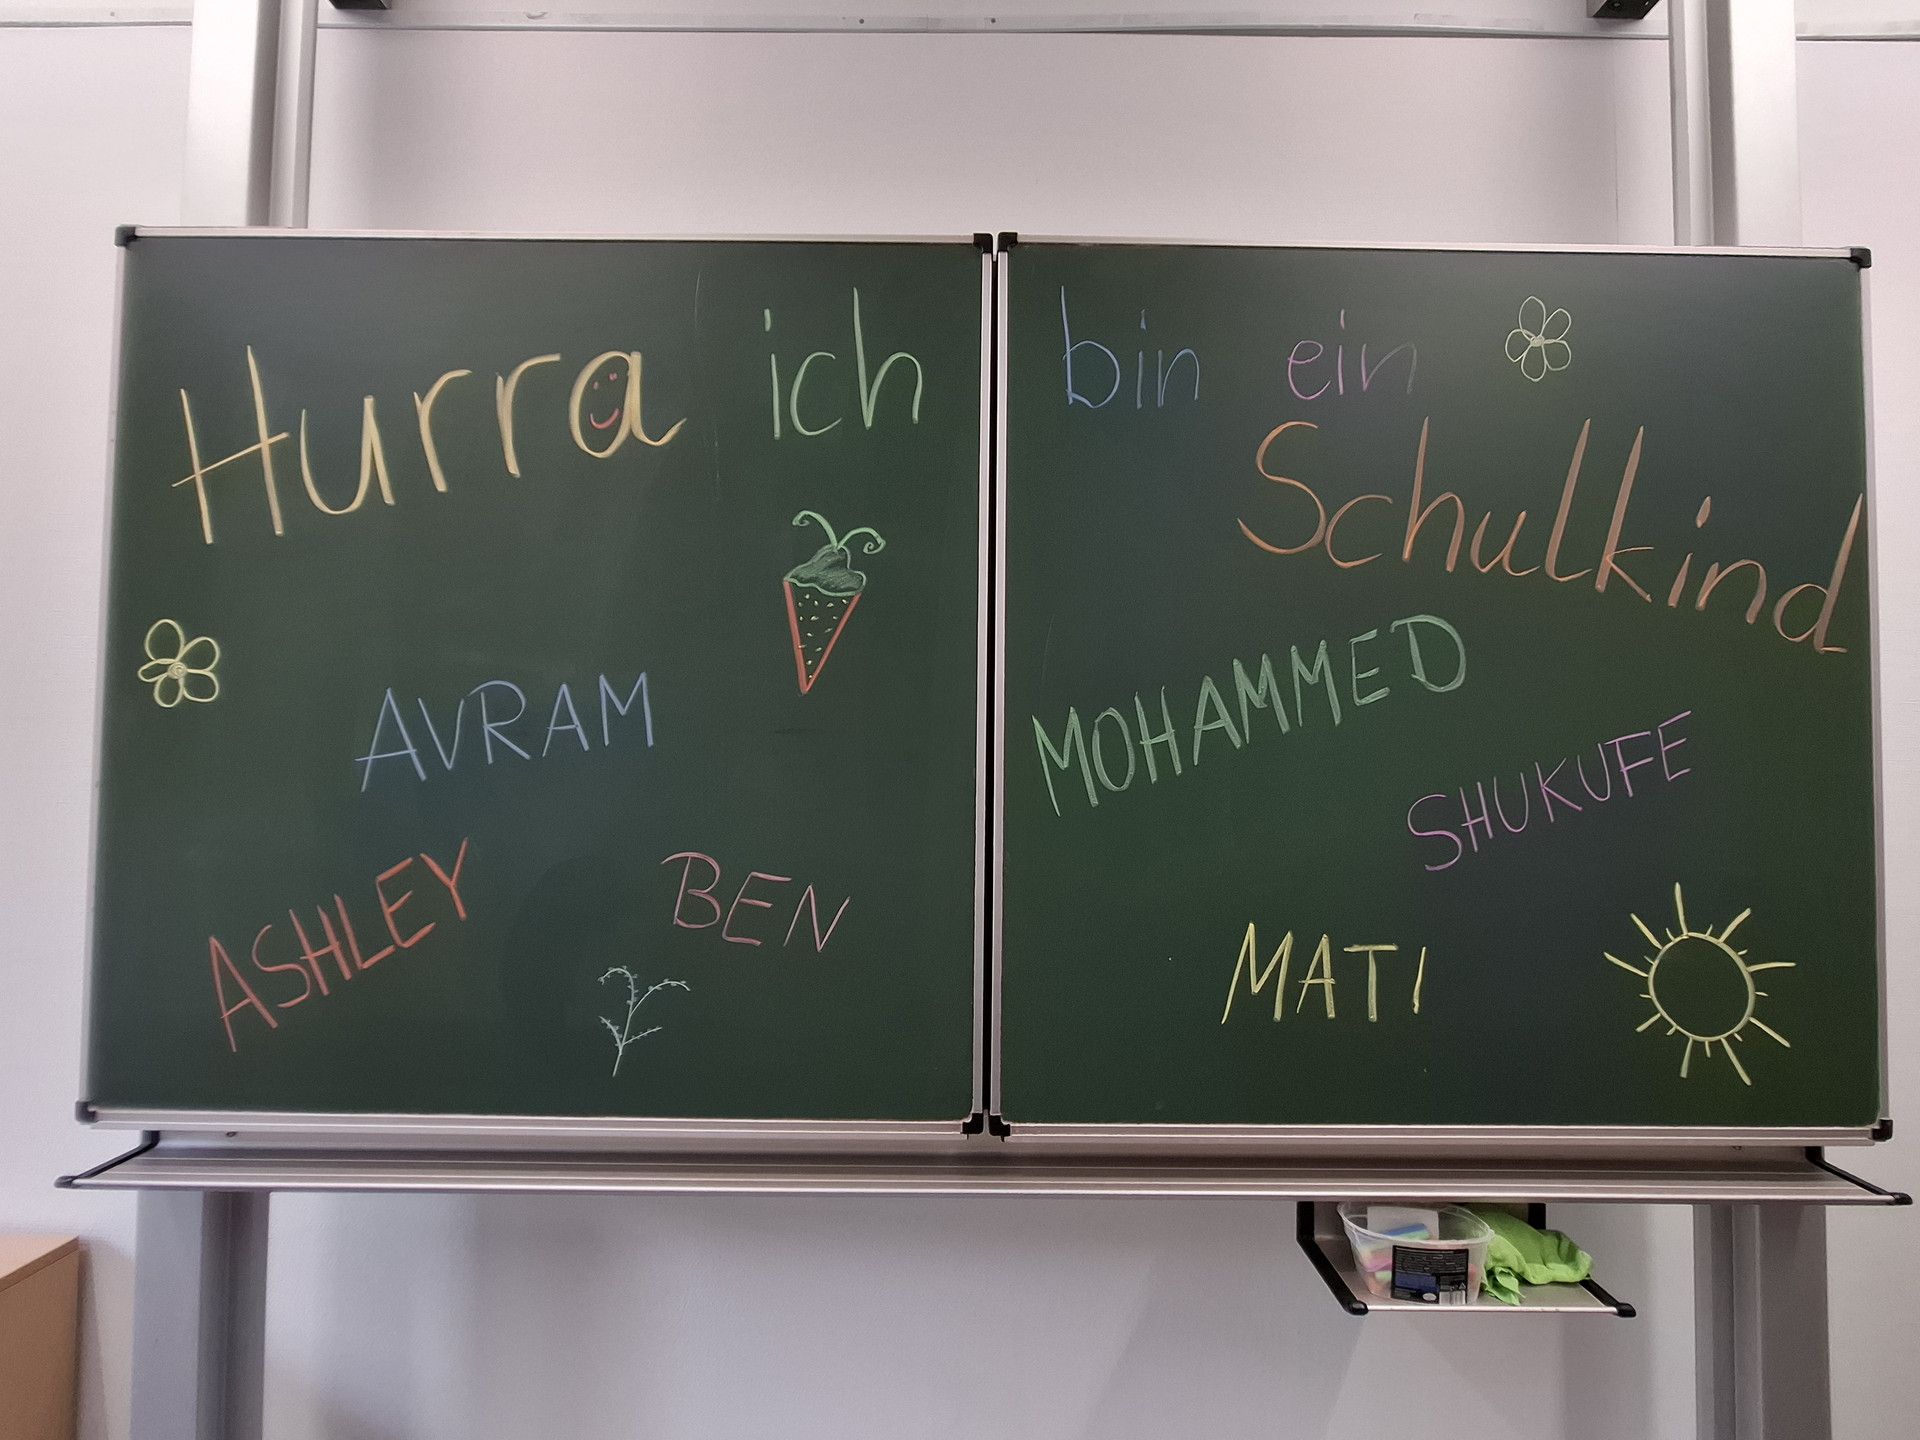 Hurra ich bin ein
Schulkind
AVRAM
MOHAMMED
SHUKUFE
ASHLEY
BEN
MATI